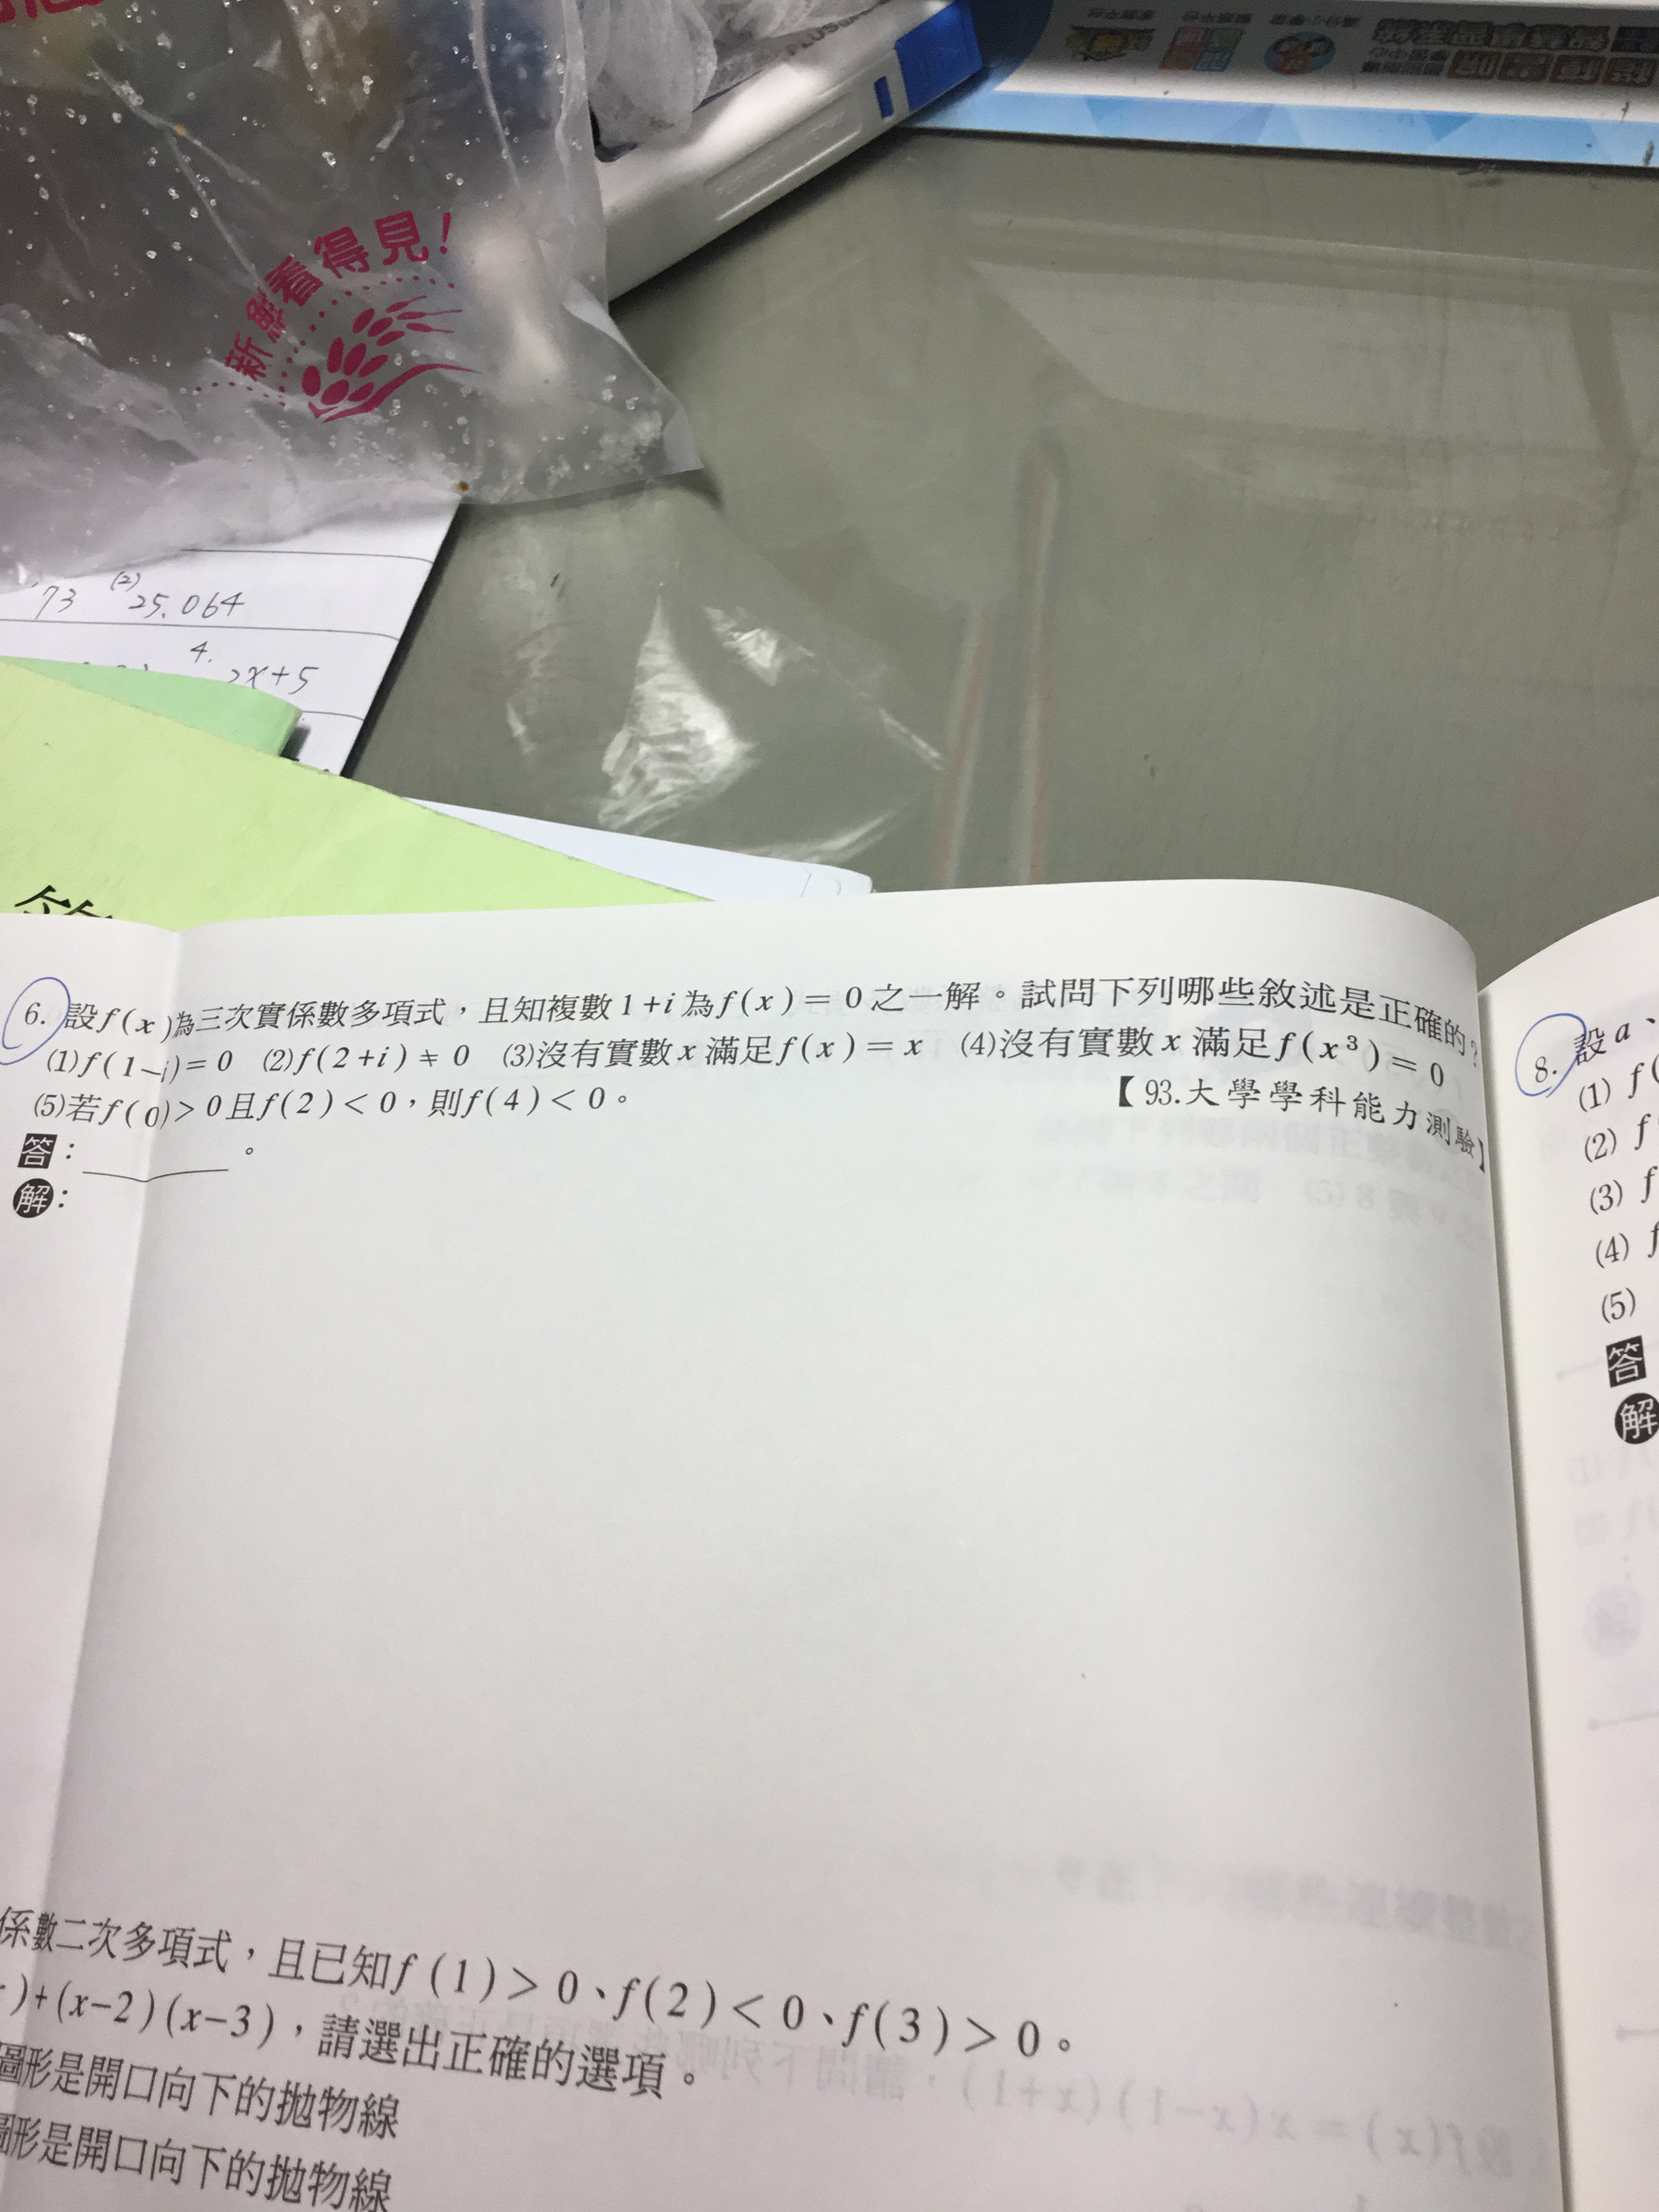 新鮮看得見!
73 (2) 25.064
4. 2x+5
6. 設f(x)為三次實係數多項式，且知複數1+i為f(x)=0之一解。試問下列哪些敘述是正確的？
(1)f(1-i)=0 (2)f(2+i)≠0 (3)沒有實數x滿足f(x)=x (4)沒有實數x滿足f(x³)=0
(5)若f(0)>0且f(2)<0，則f(4)<0。
【93.大學學科能力測驗】
答：＿＿＿。
解：
係數二次多項式，且已知f(1)>0、f(2)<0、f(3)>0。
)+(x-2)(x-3)，請選出正確的選項。
圖形是開口向下的拋物線
圖形是開口向下的拋物線
8. 設a、
(1) f(
(2) f
(3) f
(4) f
(5)
答
解